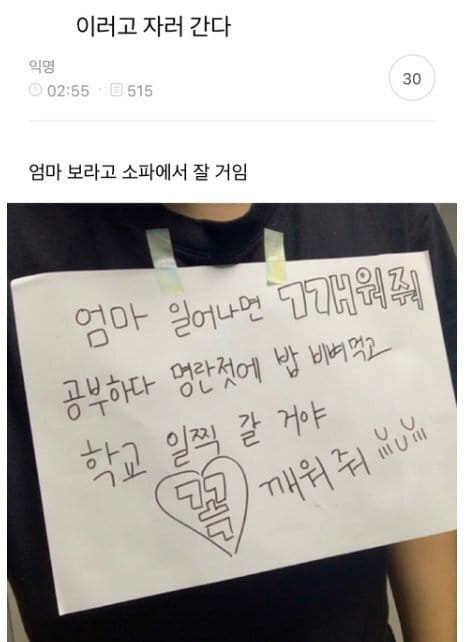 이러고 자러 간다
익명
02:55 · 515
30
엄마 보라고 소파에서 잘 거임
엄마 일어나면 깨워줘
공부하다 명란젓에 밥 비벼먹고
학교 일찍 갈 거야
꼭 깨워줘